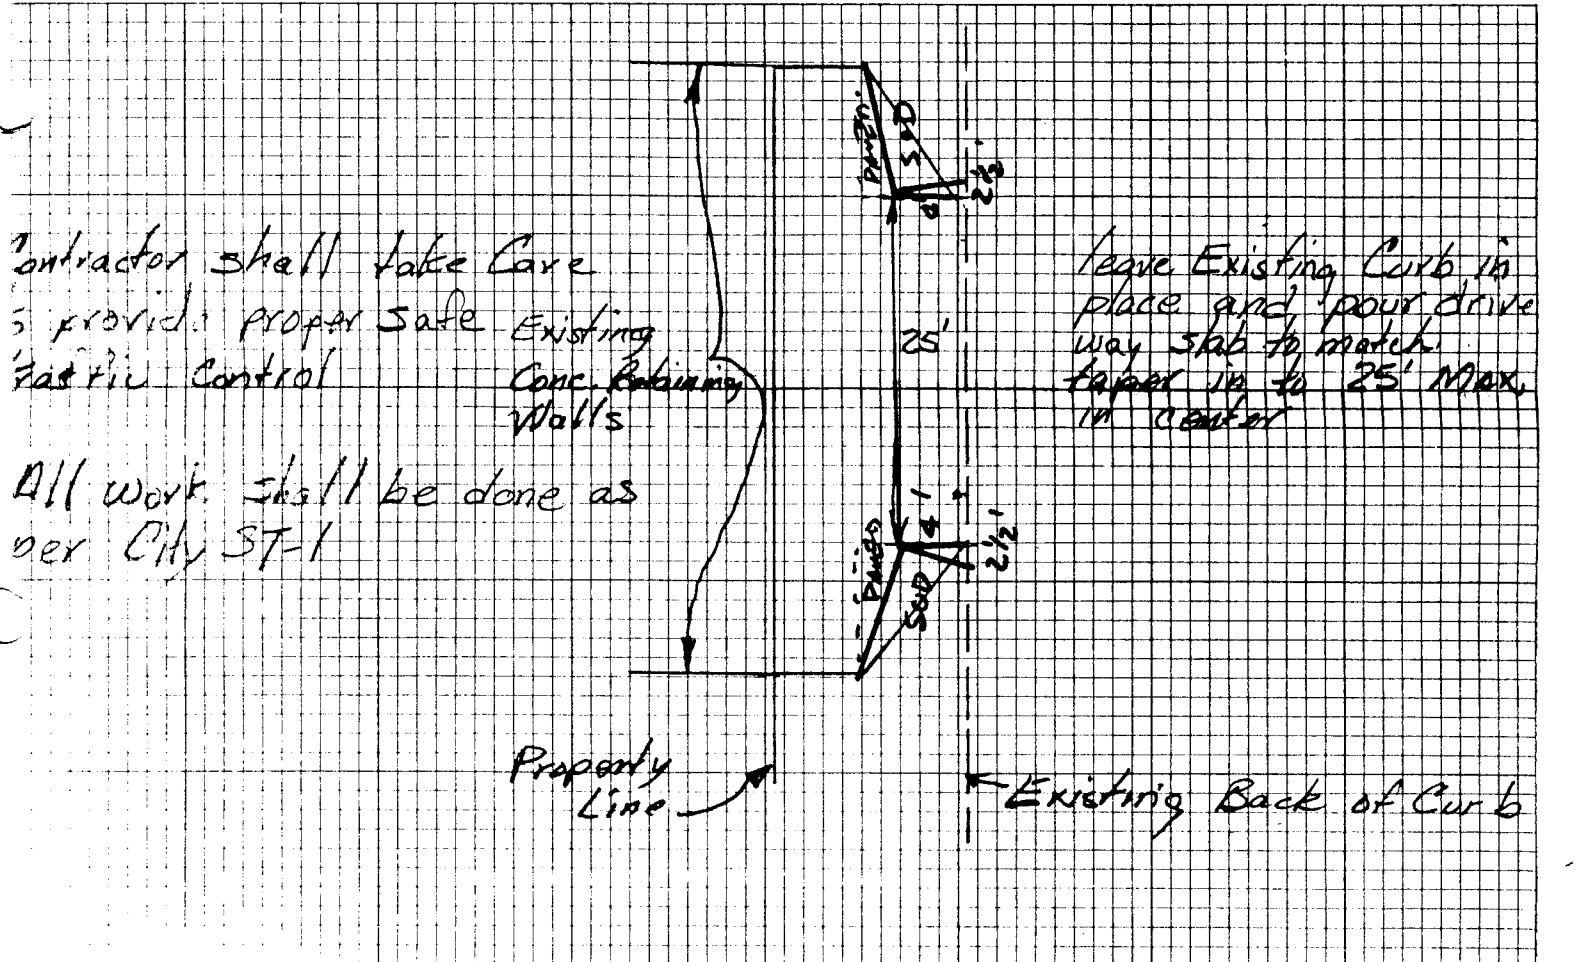 Contractor shall take Care
provide proper safe
Traffic Control
All work shall be done as
per City ST-1
Existing
Conc. Retaining
Walls
PAVED
SOD
2½'
25'
4'
2½'
PAVED
SOD
leave Existing Curb in
place and pour drive
way slab to match.
taper in to 25' Max.
in center
Property
Line
Existing Back of Curb